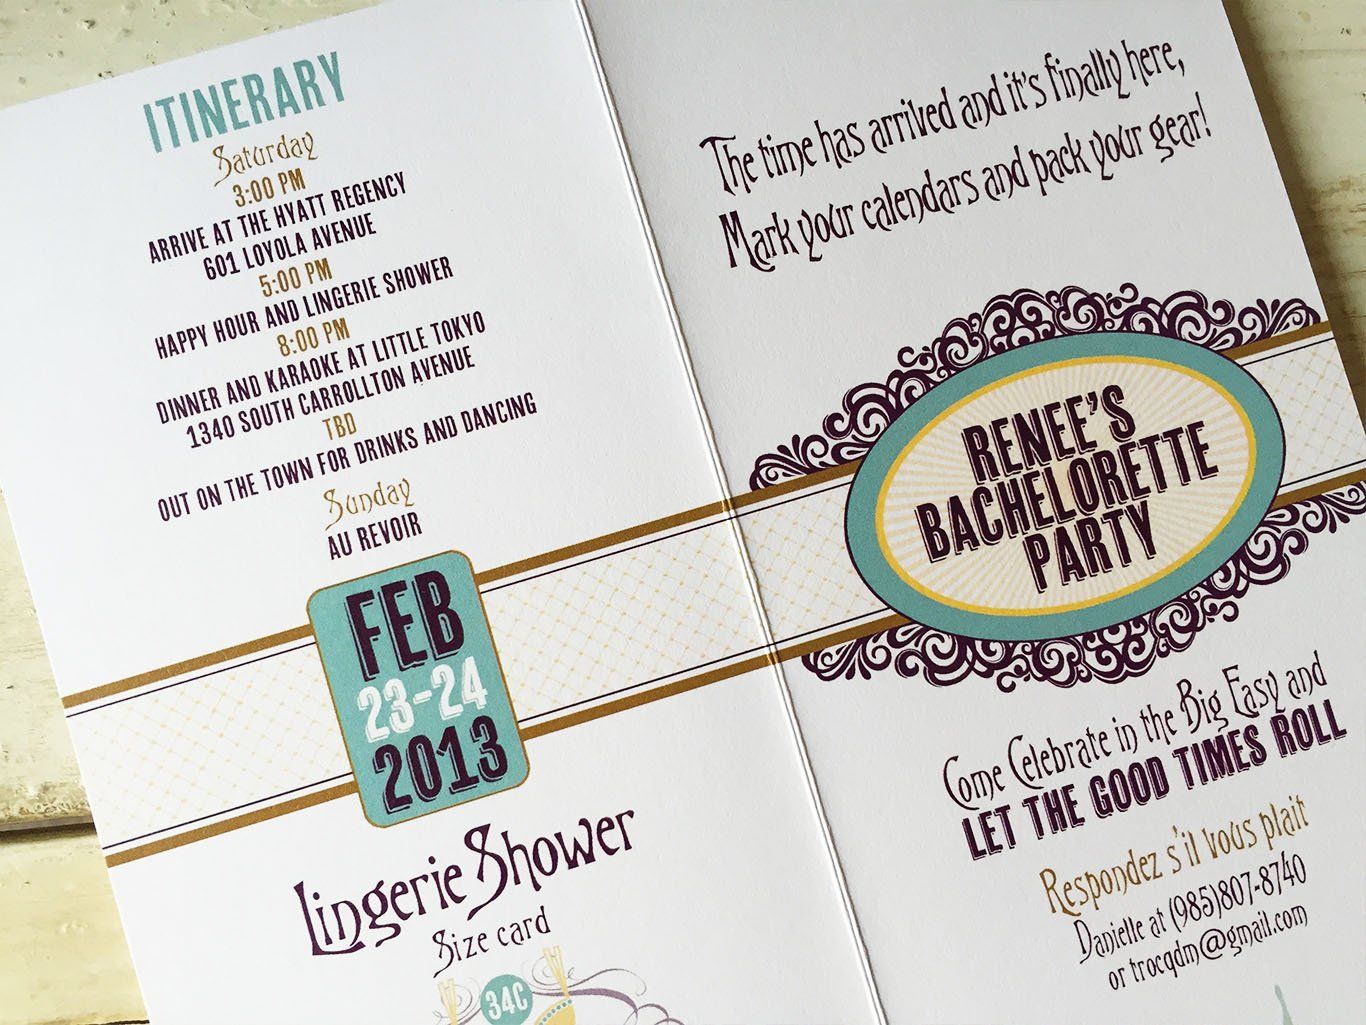 ITINERARY
Saturday
3:00 PM
ARRIVE AT THE HYATT REGENCY
601 LOYOLA AVENUE
5:00 PM
HAPPY HOUR AND LINGERIE SHOWER
8:00 PM
DINNER AND KARAOKE AT LITTLE TOKYO
1340 SOUTH CARROLLTON AVENUE
TBD
OUT ON THE TOWN FOR DRINKS AND DANCING
Sunday
AU REVOIR
FEB
23-24
2013
Lingerie Shower
Size card
34C
The time has arrived and it's finally here,
Mark your calendars and pack your gear!
RENEE'S
BACHELORETTE
PARTY
Come Celebrate in the Big Easy and
LET THE GOOD TIMES ROLL
Respondez s'il vous plait
Danielle at (985)807-8740
or trocqdm@gmail.com